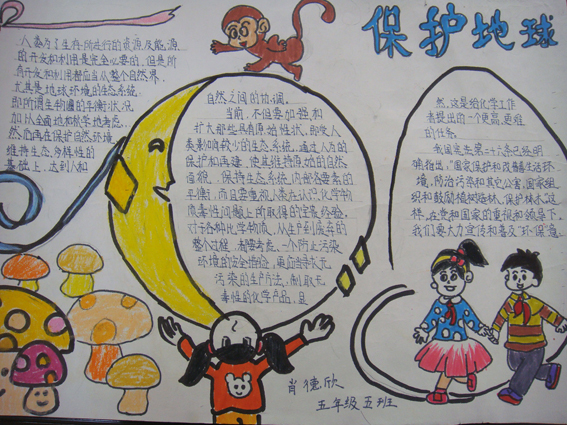 保护地球
人类为了生存所进行的资源及能源
的开发和利用是完全必要的,但是所
有开发和利用都应当从整个自然界,
尤其是地球环境的生态系统,
即所谓生物圈的平衡状况
加以全面地和科学地考虑。
然后再在保护自然环境
维持生态多样性的
基础上,达到人和
自然之间的协调。
当前,不但要加强和
扩大那些具有原始性状,即受人
类影响较少的生态系统,通过人为的
保护和再建,使其维持原始的自然
面貌,保持生态系统内部各要素的
平衡,而且要重视人类在认识化学中
对于各种化学物质,从生产到废弃的
整个过程,都要考虑,一个防止污染
环境的安全措施,更应当争取无
污染的生产方法,制取无
毒性的化学产品,且
然,这是给化学工作
者提出的一个更高,更难
的任务.
我国宪法第二十六条已经明
确指出,"国家保护和改善生活环
境,防治污染和其它公害,国家组
织和鼓励植树造林,保护林木"这
样,在党和国家的重视和领导下,
我们要大力宣传和普及"环保"意
肖德欣
五年级五班